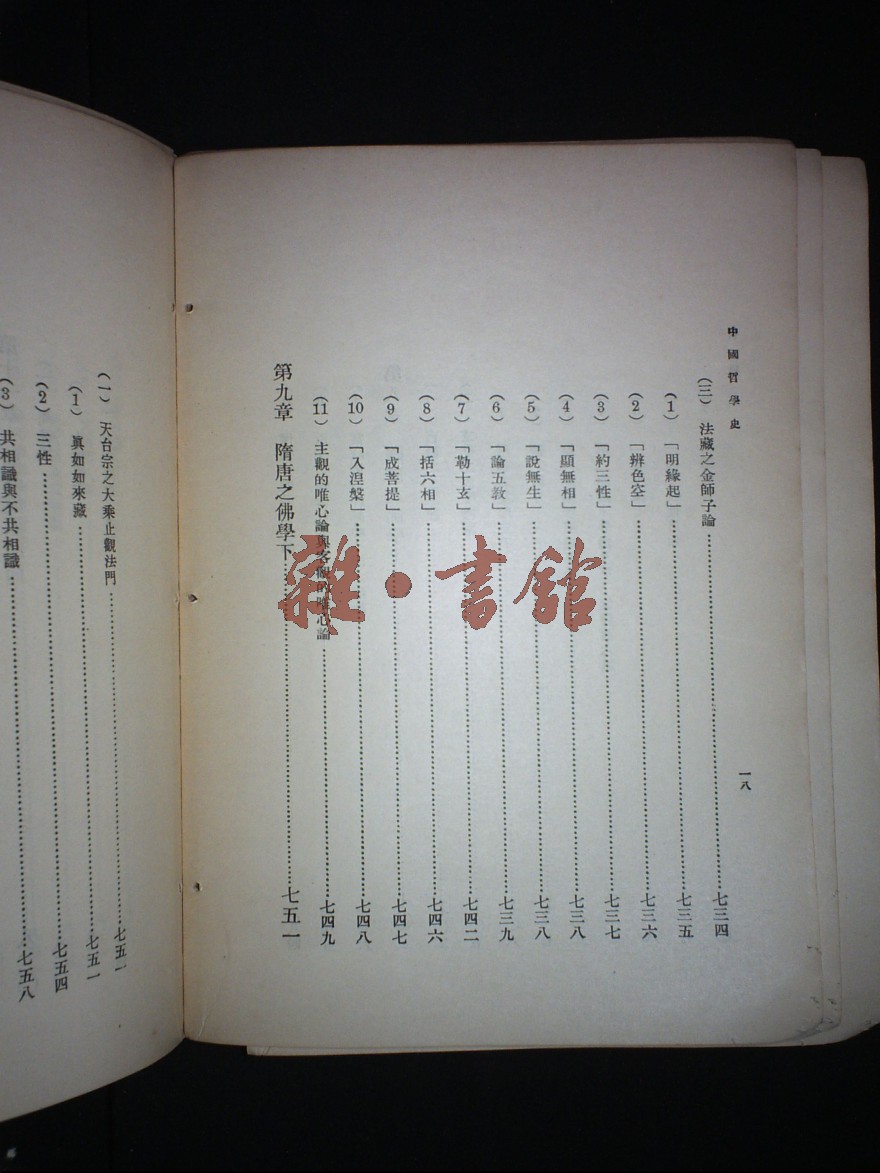 中國哲學史
一八
(三) 法藏之金師子論……七三四
(1) 「明緣起」……七三五
(2) 「辨色空」……七三六
(3) 「約三性」……七三七
(4) 「顯無相」……七三八
(5) 「說無生」……七三八
(6) 「論五教」……七三九
(7) 「勒十玄」……七四二
(8) 「括六相」……七四六
(9) 「成菩提」……七四七
(10) 「入涅槃」……七四八
(11) 主觀的唯心論與客觀的唯心論……七四九
第九章 隋唐之佛學下……七五一
(一) 天台宗之大乘止觀法門……七五一
(1) 眞如如來藏……七五一
(2) 三性……七五四
(3) 共相識與不共相識……七五八
雜·書館